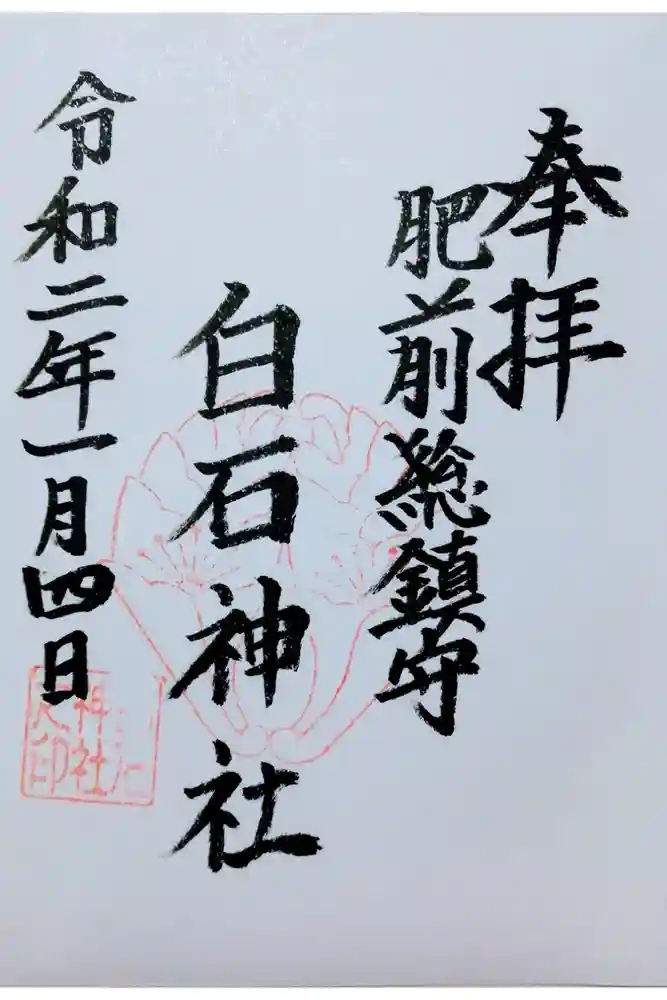 奉拝
肥前総鎮守
白石神社
令和二年一月四日
神社
印